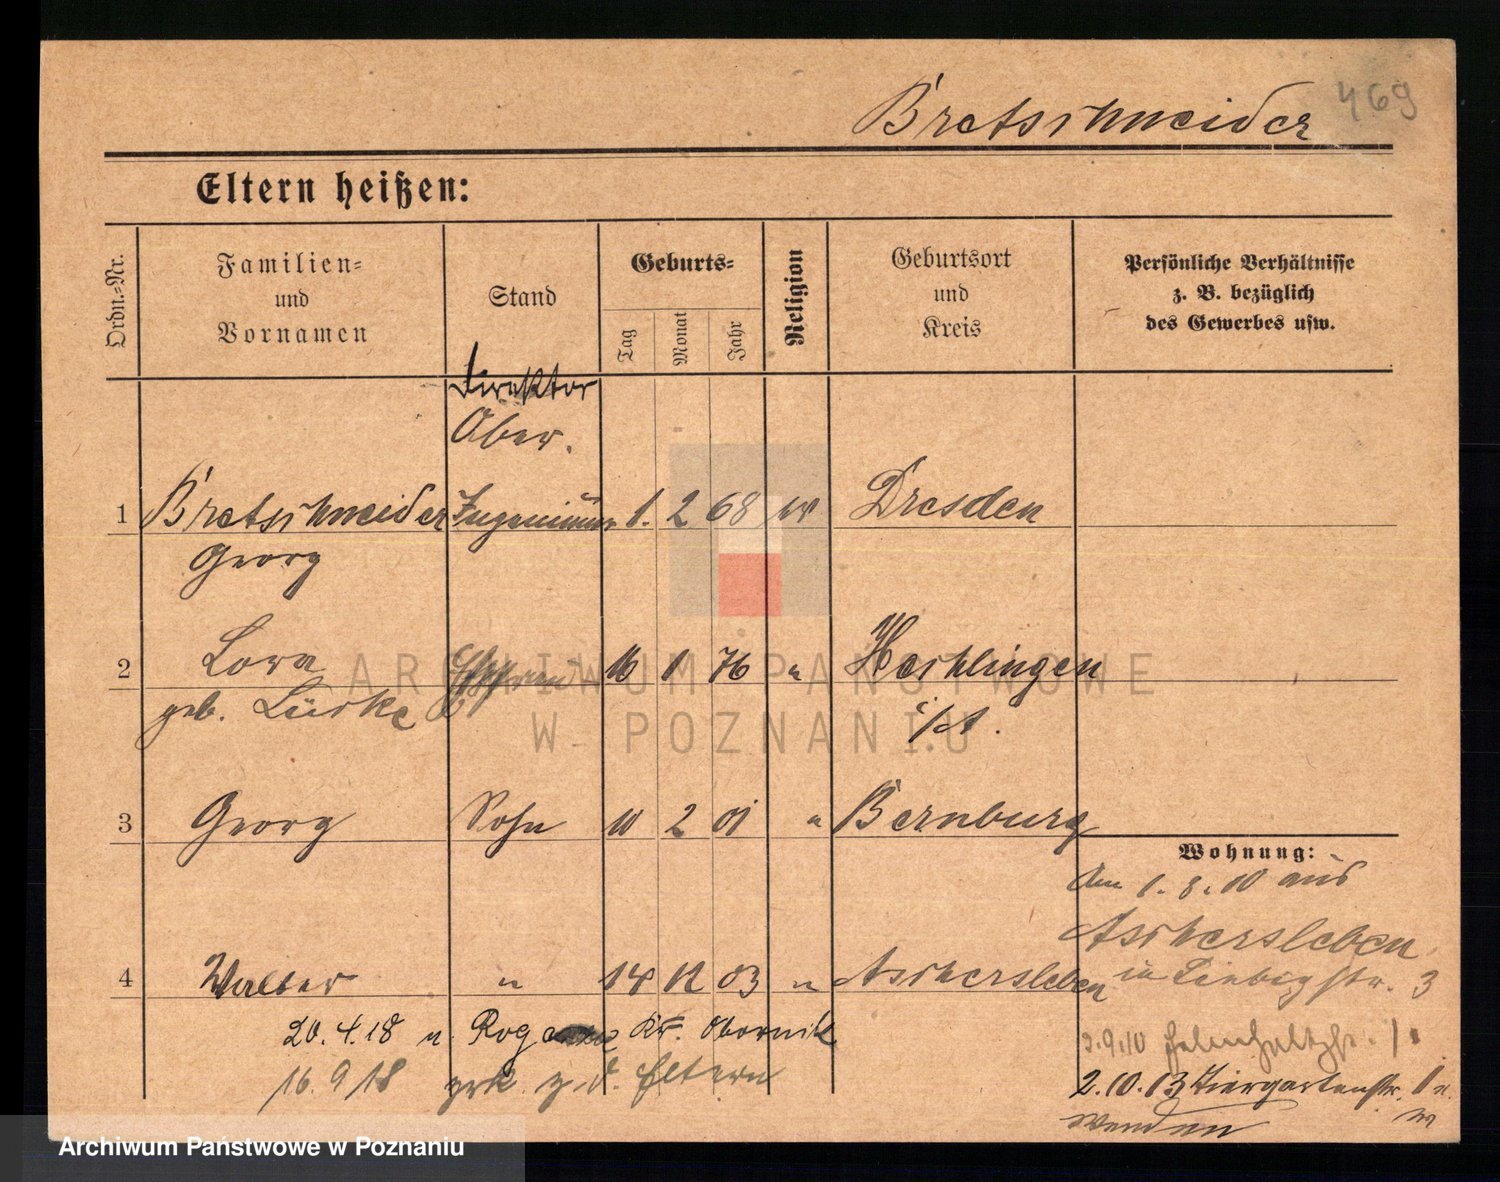 Bretschneider 469
Eltern heißen:
Ordn.-Nr.
Familien-
und
Vornamen
Stand
Geburts-
Tag
Monat
Jahr
Religion
Geburtsort
und
Kreis
Persönliche Verhältnisse
z. B. bezüglich
des Gewerbes usw.
Direktor
Ober.
1 Bretschneider Ingenieur 1. 2 68 ev Dresden
Georg
2 Lora Ehefrau 16 1 76 " Hecklingen
geb. Lücke i/A.
3 Georg Sohn 10 2 01 " Bernburg
Wohnung:
Am 1. 8. 10 aus
Aschersleben
4 Walter " 14 12 03 " Aschersleben
in Liebigstr. 3
20.4.18 n. Kr. Obornik
2.9.10
16.9.18 zrk. z. d. Eltern
2.10.13 Tiergartenstr. 1
wenden
ARCHIWUM PAŃSTWOWE
W POZNANIU
Archiwum Państwowe w Poznaniu